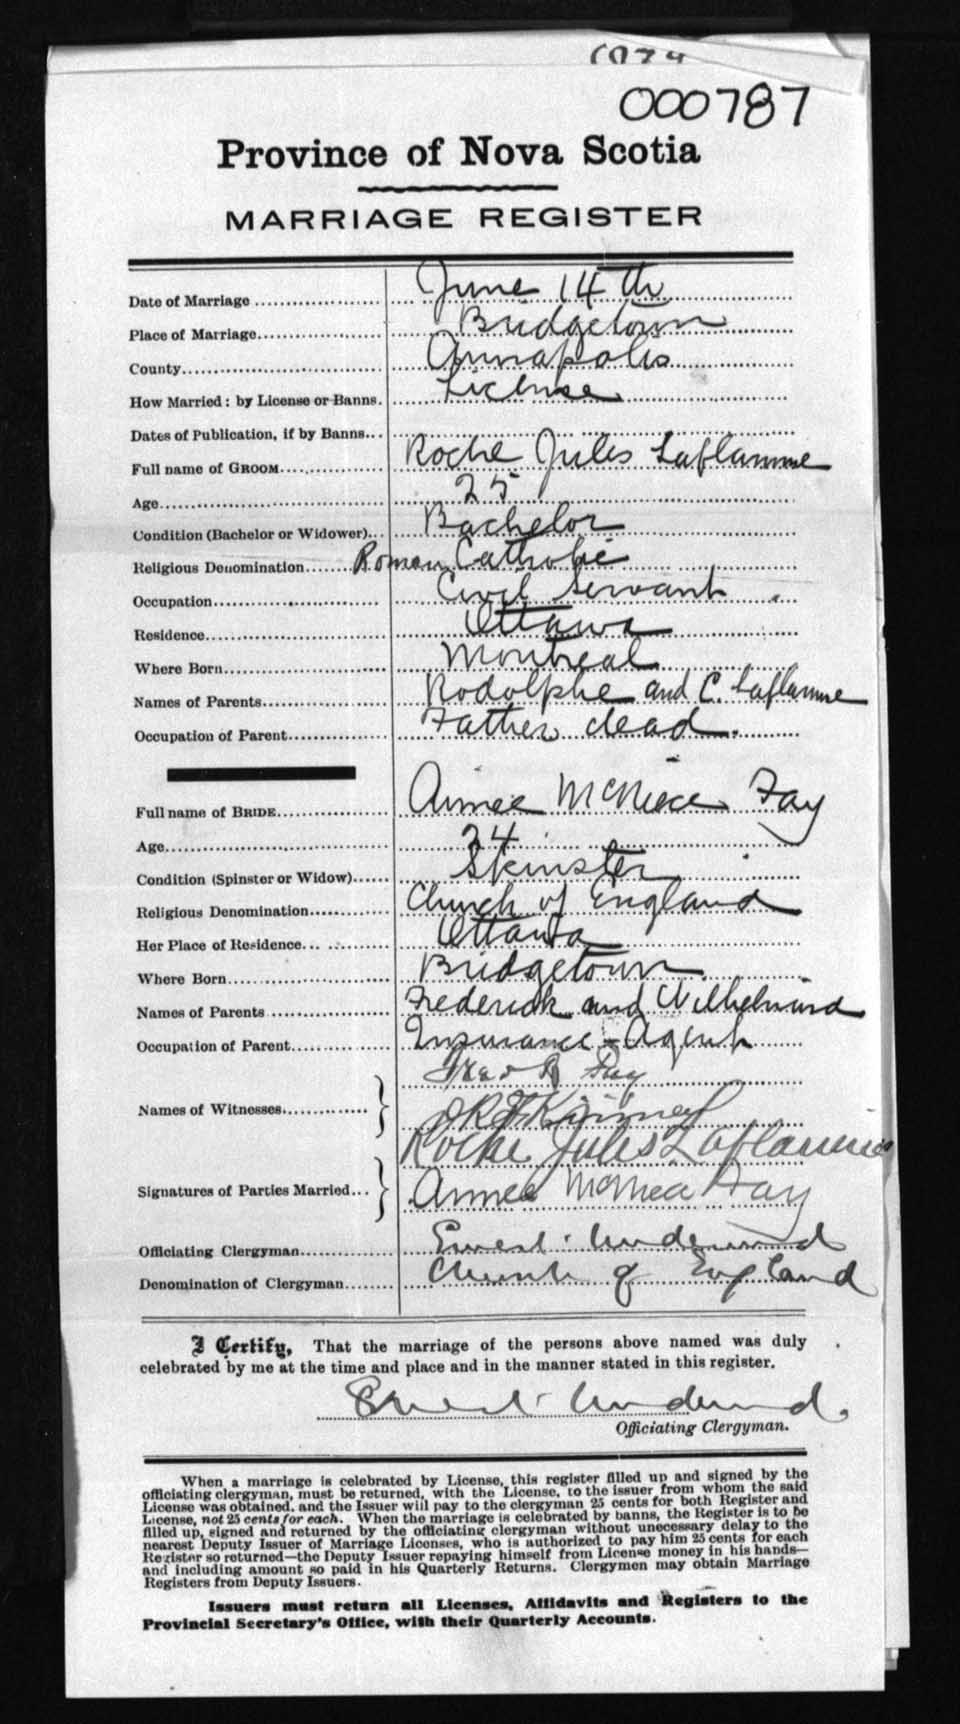 000787
Province of Nova Scotia
MARRIAGE REGISTER
Date of Marriage .................... June 14th
Place of Marriage.................... Bridgetown
County.................... Annapolis
How Married: by License or Banns. License
Dates of Publication, if by Banns...
Full name of GROOM.................... Roche Jules Laflamme
Age.................... 25
Condition (Bachelor or Widower).. Bachelor
Religious Denomination........ Roman Catholic
Occupation.................... Civil Servant
Residence.................... Ottawa
Where Born.................... Montreal
Names of Parents.................... Rodolphe and C. Laflamme
Occupation of Parent.................... Father dead.
Full name of BRIDE.................... Aimee McNiece Fay
Age.................... 24
Condition (Spinster or Widow)...... Spinster
Religious Denomination............ Church of England
Her Place of Residence............ Ottawa
Where Born.................... Bridgetown
Names of Parents .................... Frederick and
Occupation of Parent.................... Insurance - Agent
Fred R Fay
Names of Witnesses..............
Kinney
Roche Jules Laflamme
Signatures of Parties Married...
Aimee Fay
Officiating Clergyman.............. Ernest Underwood
Denomination of Clergyman........ Church of England
I Certify, That the marriage of the persons above named was duly
celebrated by me at the time and place and in the manner stated in this register.
Ernest Underwood.
Officiating Clergyman.
When a marriage is celebrated by License, this register filled up and signed by the
officiating clergyman, must be returned, with the License, to the issuer from whom the said
License was obtained, and the Issuer will pay to the clergyman 25 cents for both Register and
License, not 25 cents for each. When the marriage is celebrated by banns, the Register is to be
filled up, signed and returned by the officiating clergyman without unecessary delay to the
nearest Deputy Issuer of Marriage Licenses, who is authorized to pay him 25 cents for each
Register so returned—the Deputy Issuer repaying himself from License money in his hands—
and including amount so paid in his Quarterly Returns. Clergymen may obtain Marriage
Registers from Deputy Issuers.
Issuers must return all Licenses, Affidavits and Registers to the
Provincial Secretary's Office, with their Quarterly Accounts.